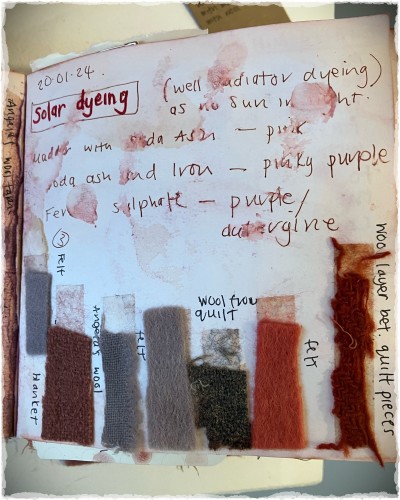 20.01.24.
Solar dyeing
(well radiator dyeing)
as no sun in
madder with soda Ash — pink
soda ash and Iron — pinky purple
sulphate — purple/
aubergine
③ Felt
Blanket
Angora & wool
felt
wool from
quilt
felt
wool layer bet. quilt pieces